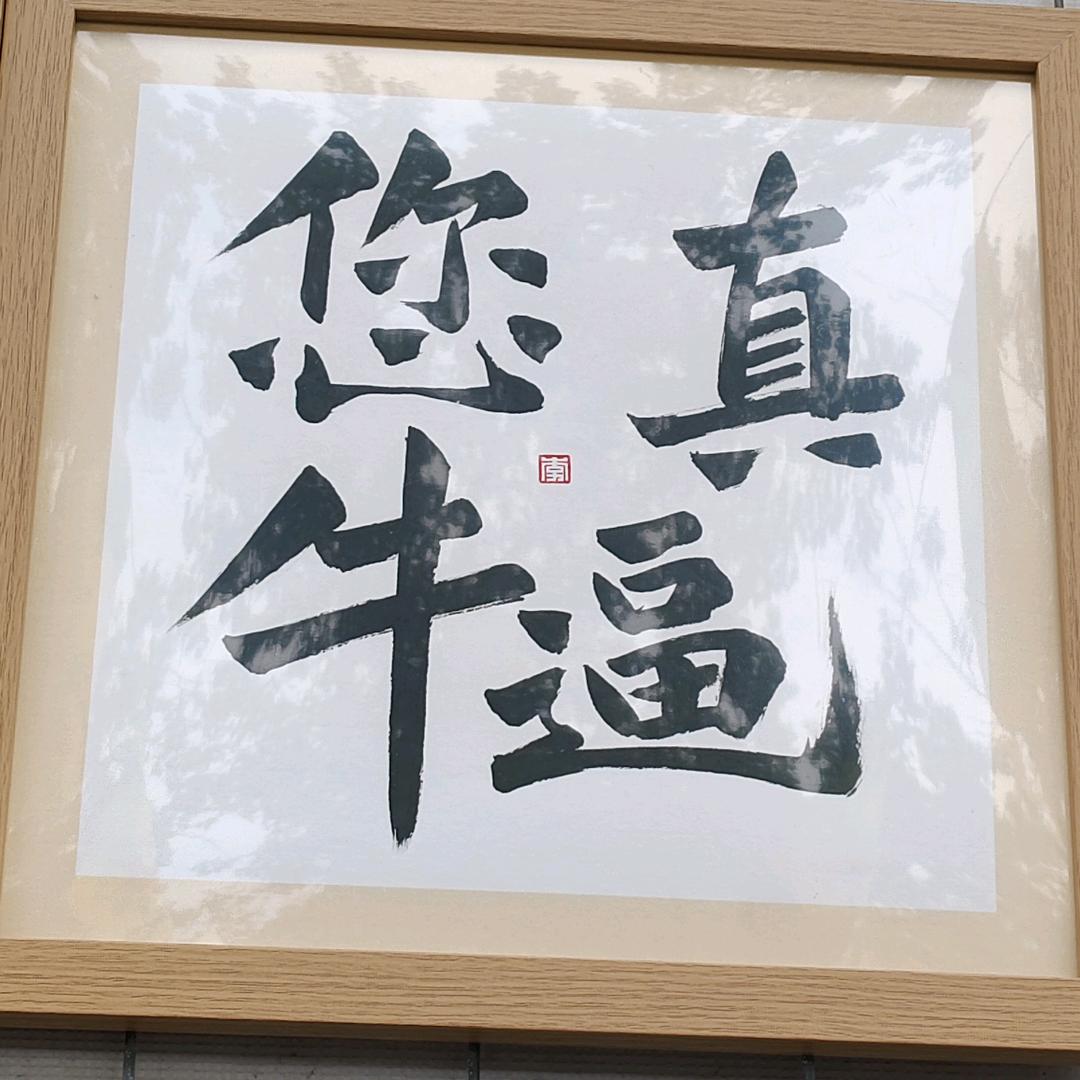 您真
牛逼